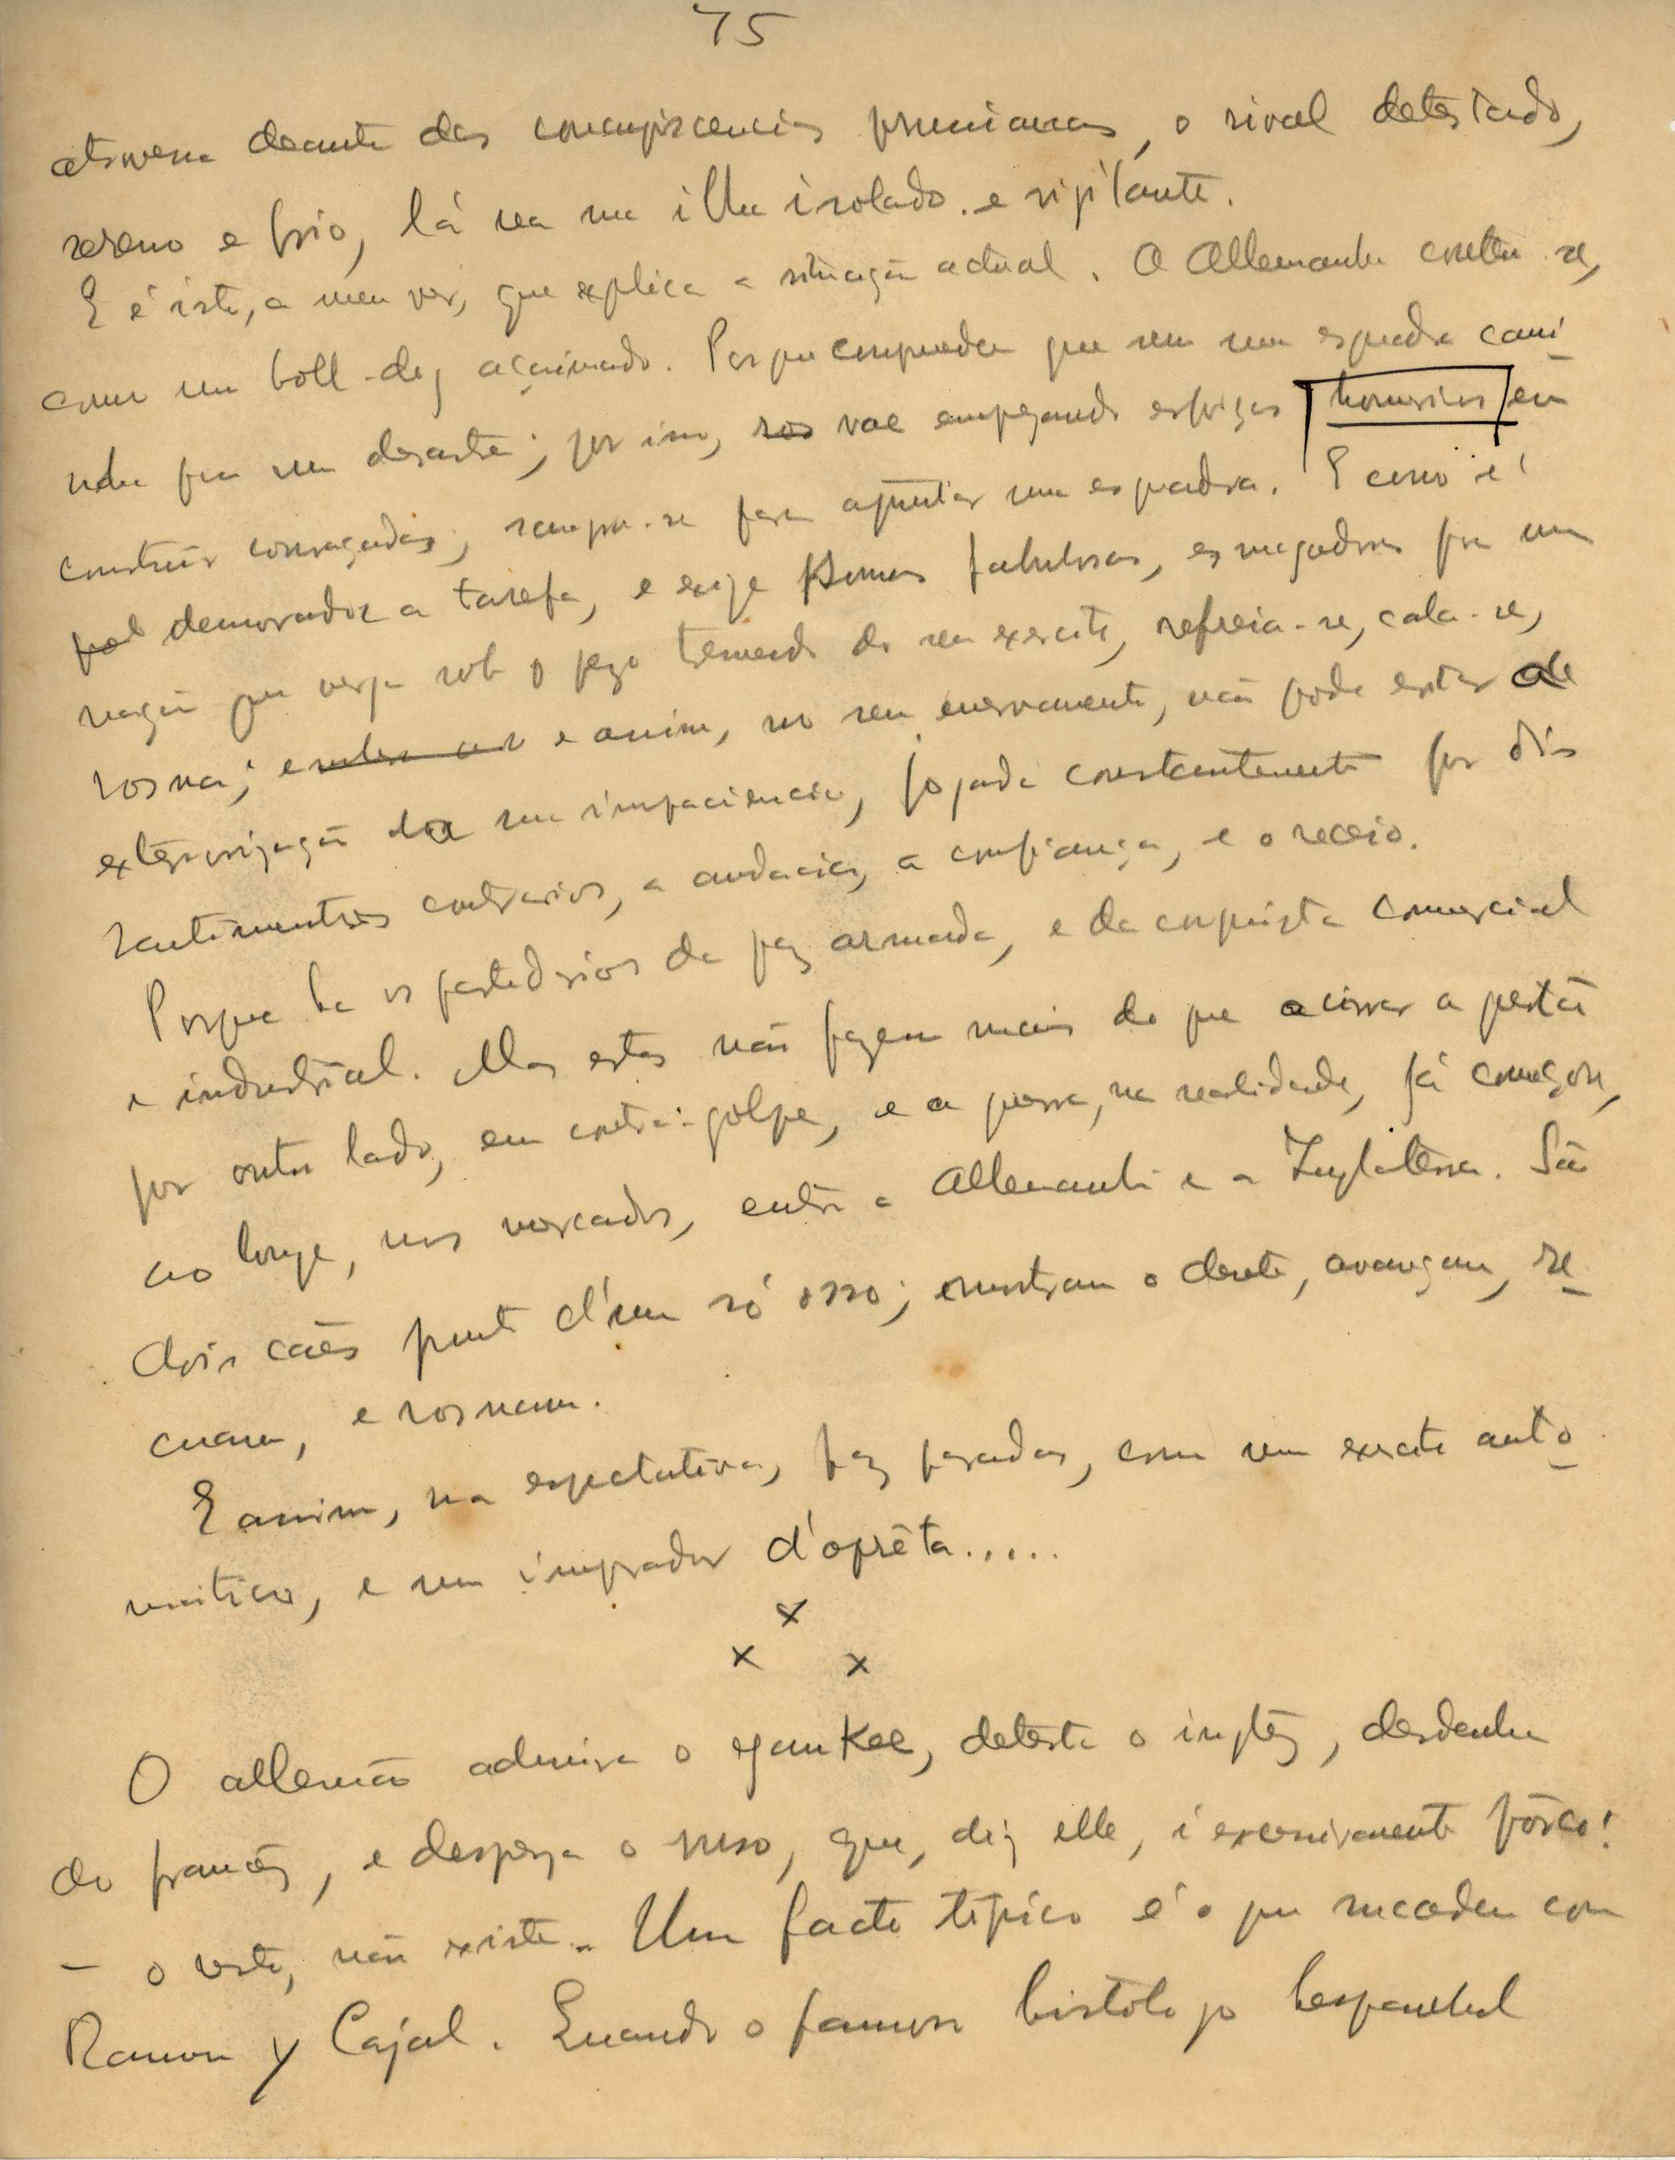 75
deante das concupiscencias prussianas, o rival detestado,
sereno e frio, lá na sua ilha isolado e vigilante.
E é isto, a meu ver, que explica a situação actual. A Allemanha contem-se,
como um boll-dog açaimado. Porque comprehende que sem uma esquadra cami
nha para um desastre; por isso, vae empregando esforços em
construir couraçados, para apromptar uma esquadra. E como é
demorada a tarefa, e exige sommas fabulosas, esmagadoras para uma
nação que verga sob o pezo tremendo do seu exercito, refreia-se, cala-se,
rosna; e assim, no seu enervamento, não pode estar
exteriorização da sua impaciencia, jogada constantemente por dois
sentimentos contrarios, a audacia, a confiança, e o receio.
Porque ha os partidarios da paz armada, e da conquista comercial
e industrial. Mas estes não fazem mais do que acirrar a questão
por outro lado, em contra-golpe, e a guerra, na realidade, já começou,
ao longe, nos mercados, entre a Allemanha e a Inglaterra. São
dois cães junto d'um só osso; mostram o dente, avançam, re
cuam, e rosnam.
E assim, na espectativa, faz paradas, com um exercito auto
matico, e um imperador d'oprêta.....
x
x x
O allemão admira o yankee, detesta o inglêz, desdenha
do francêz, e despreza o russo, que, diz elle, é excessivamente pôrco!
- o resto, não existe. Um facto tipico é o que succedeu com
Ramon y Cajal. Quando o famoso histologo hespanhol